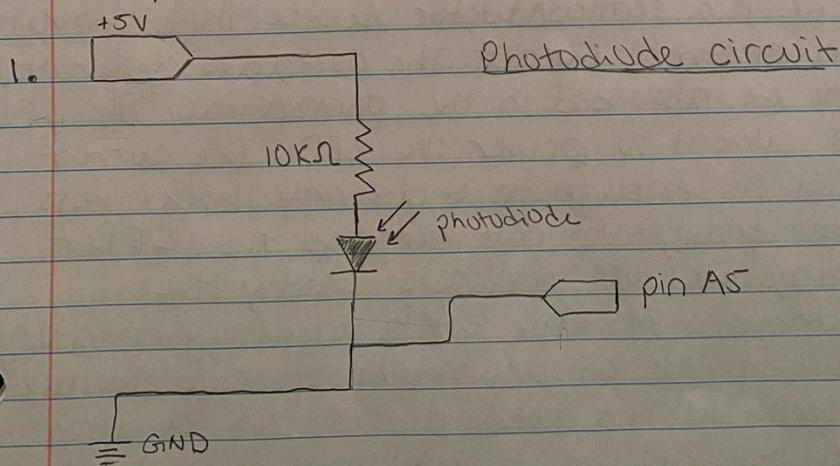 +5V
1.
Photodiode circuit
10KΩ
photodiode
pin A5
GND